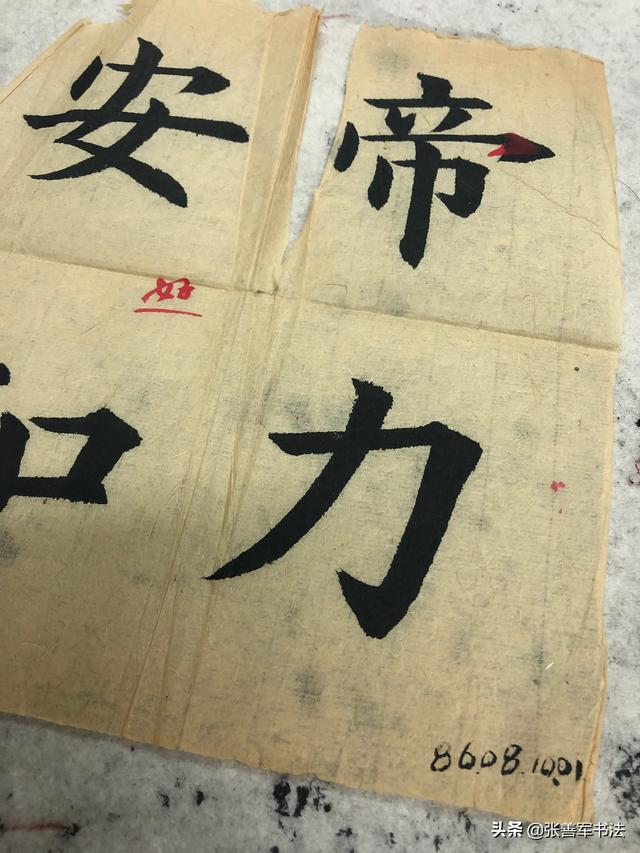 安 帝
好
力
8608.1001
头条 @张善军书法